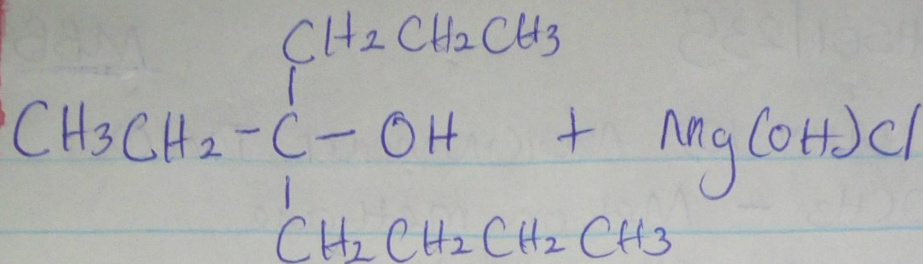 CH2CH2CH3
CH3CH2-C-OH + Mg(OH)Cl
CH2CH2CH2CH3